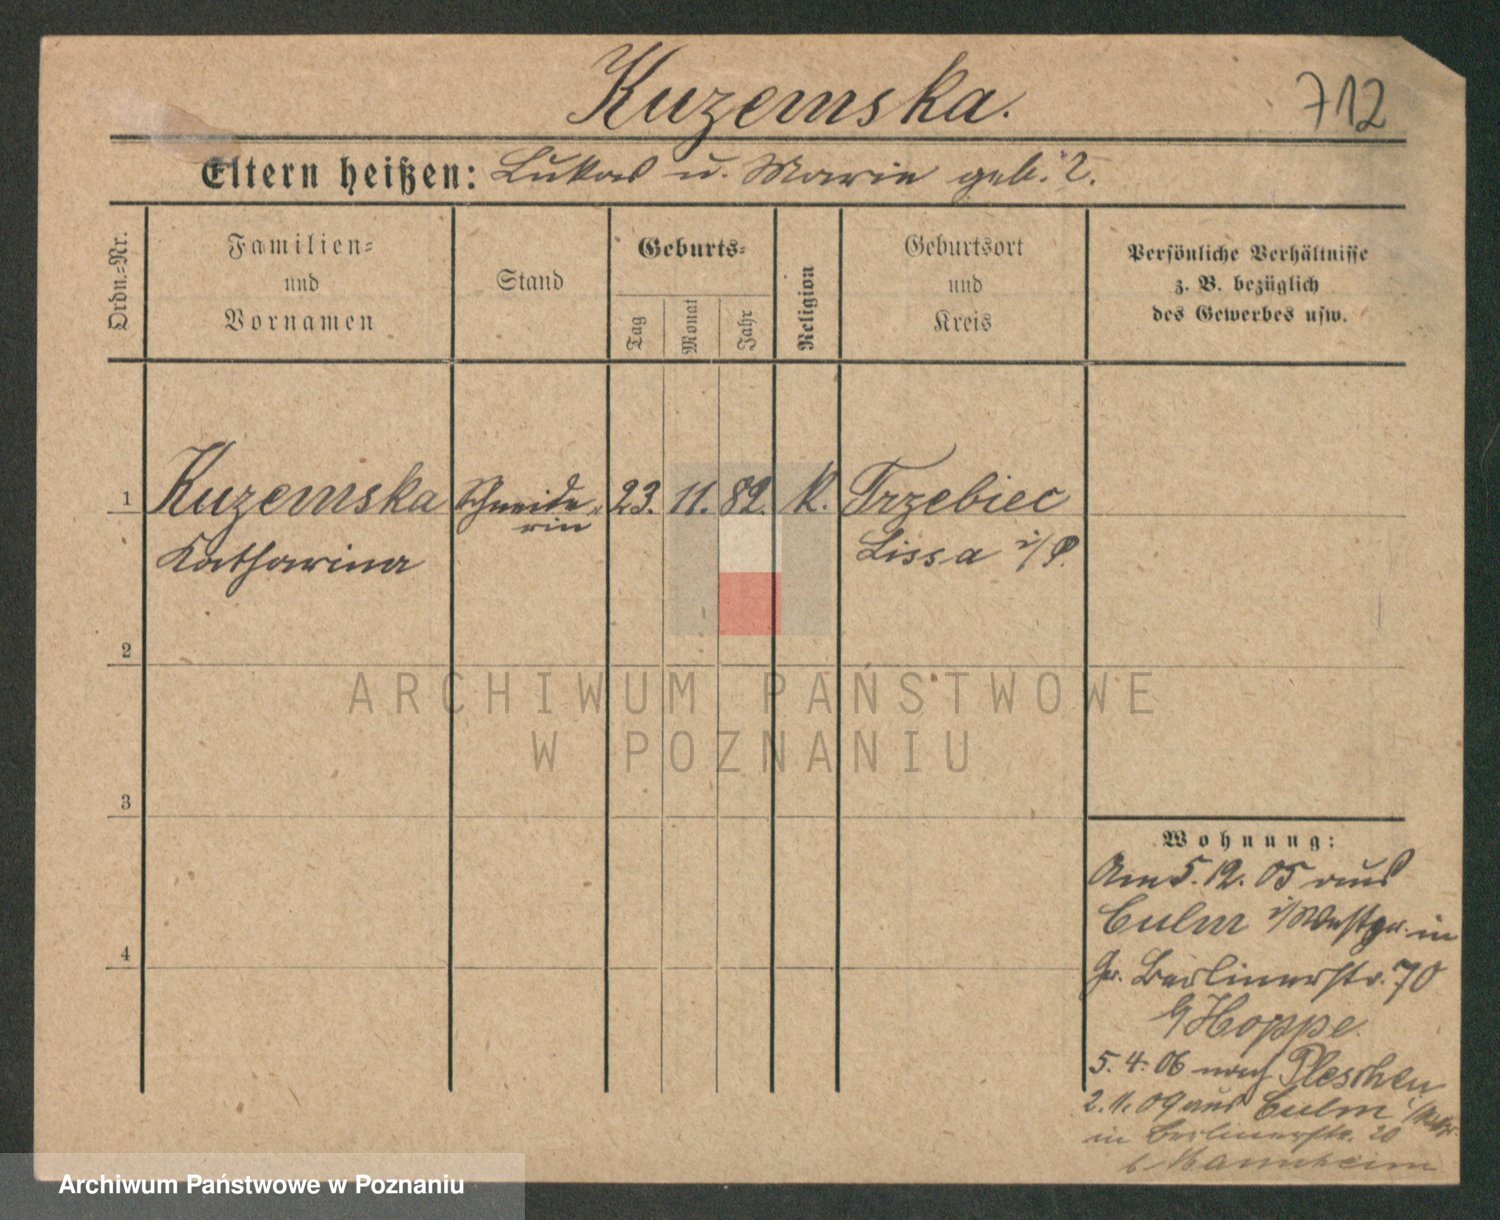 Kuzemska.
712
Eltern heißen: Lukas u. Marie geb. ?.
Ordn.=Nr.
Familien=
und
Vornamen
Stand
Geburts=
Tag
Monat
Jahr
Religion
Geburtsort
und
Kreis
Persönliche Verhältnisse
z. B. bezüglich
des Gewerbes usw.
1 Kuzemska Schneide- 23. 11. 82. k. Trzebiec
rin
Katharina Lissa i/P.
2
ARCHIWUM PAŃSTWOWE
W POZNANIU
3
4
Wohnung:
Am 5. 12. 05 aus
Culm i/Westpr. in
Gr. Berlinerstr. 70
b/Hoppe.
5. 4. 06 nach Pleschen
2. 11. 09 aus Culm
in Berlinerstr. 20
b. Mannheim
Archiwum Państwowe w Poznaniu